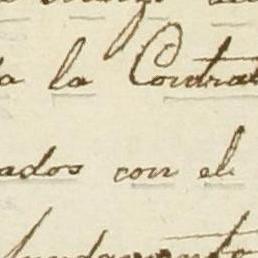 la Contra
ados con el
fundamento